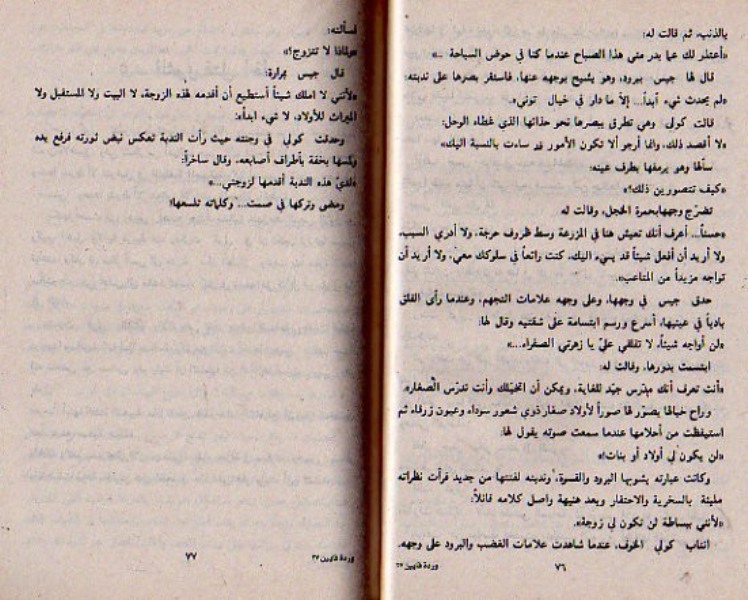 بالذنب، ثم قالت له:
«أعتذر لك عما بدر مني هذا الصباح عندما كنا في حوض السباحة ...»
قال لها جيس ببرود، وهو يشيح بوجهه عنها، فاستقر بصرها على ندبته:
«لم يحدث شيء أبداً... إلاّ ما دار في خيال توني».
قالت كولي وهي تطرق ببصرها نحو حذائها الذي غطاه الوحل:
«لا أقصد ذلك، وانما أرجو ألا تكون الأمور قد ساءت بالنسبة اليك»
سألها وهو يرمقها بطرف عينه:
«كيف تتصورين ذلك؟»
تضرّج وجهها بحمرة الخجل، وقالت له
«حسناً... أعرف أنك تعيش هنا في المزرعة وسط ظروف حرجة، ولا أدري السبب،
ولا أريد أن أفعل شيئاً قد يسيء اليك، كنت رائعاً في سلوكك معي، ولا أريد أن
تواجه مزيداً من المتاعب».
حدق جيس في وجهها، وعلى وجهه علامات التجهم، وعندما رأى القلق
بادياً في عينيها، أسرع ورسم ابتسامة على شفتيه وقال لها:
«لن أواجه شيئاً، لا تقلقي عليّ يا زهرتي الصفراء...»
ابتسمت بدورها، وقالت له:
«أنت تعرف أنك مدرس جيّد للغاية، ويمكن أن أتخيلك وأنت تدرّس الصغار».
وراح خيالها يصوّر لها صوراً لأولاد صغار ذوي شعور سوداء وعيون زرقاء ثم
استيقظت من أحلامها عندما سمعت صوته يقول لها:
«لن يكون لي أولاد أو بنات!»
وكانت عبارته يشوبها البرود والقسوة، وندبته لفتتها من جديد فرأت نظراته
مليئة بالسخرية والاحتقار وبعد هنيهة واصل كلامه قائلاً:
«لأنني ببساطة لن تكون لي زوجة».
انتاب كولي الخوف، عندما شاهدت علامات الغضب والبرود على وجهه،
٧٦
وردة قايين ٢٧
فسألته:
«ولماذا لا تتزوج؟»
قال جيس بمرارة:
«لأنني لا املك شيئاً أستطيع أن أقدمه لهذه الزوجة، لا البيت ولا المستقبل ولا
الميراث للأولاد، لا شيء ابداً»:
وحدقت كولي في وجنته حيث رأت الندبة تعكس نبض ثورته فرفع يده
ولمسها بخفة بأطراف أصابعه، وقال ساخراً:
«لديّ هذه الندبة أقدمها لزوجتي...»
ومضى وتركها في صمت... وكلماته تلسعها!
٧٧
وردة قايين ٢٧